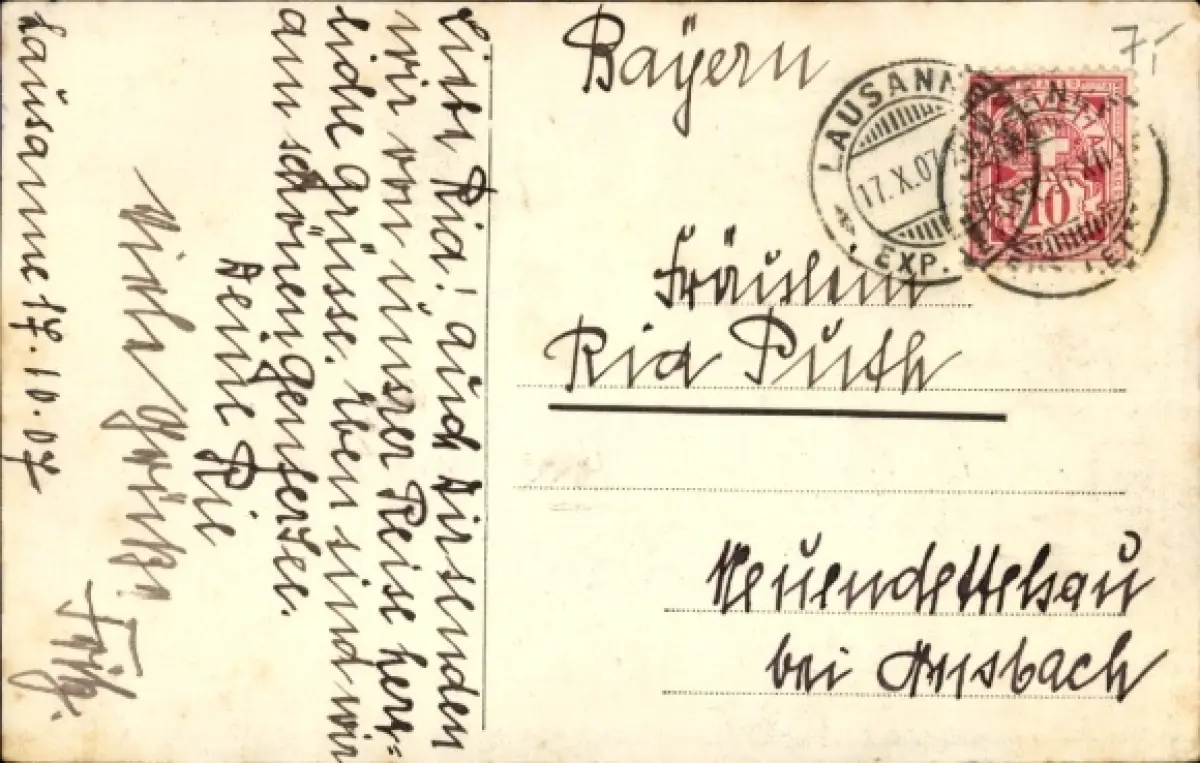 Liebe Ria! auch Dir senden
wir von unsrer Reise herz=
liche Grüsse. Eben sind wir
am schönen Genfersee.
Deine Rie
Viele Grüße
Fritz.
Lausanne 17.10.07
Bayern
7,-
LAUSANNE
17.X.07
EXP.
10
Fräulein
Ria Puth
Neuendettelsau
bei Ansbach